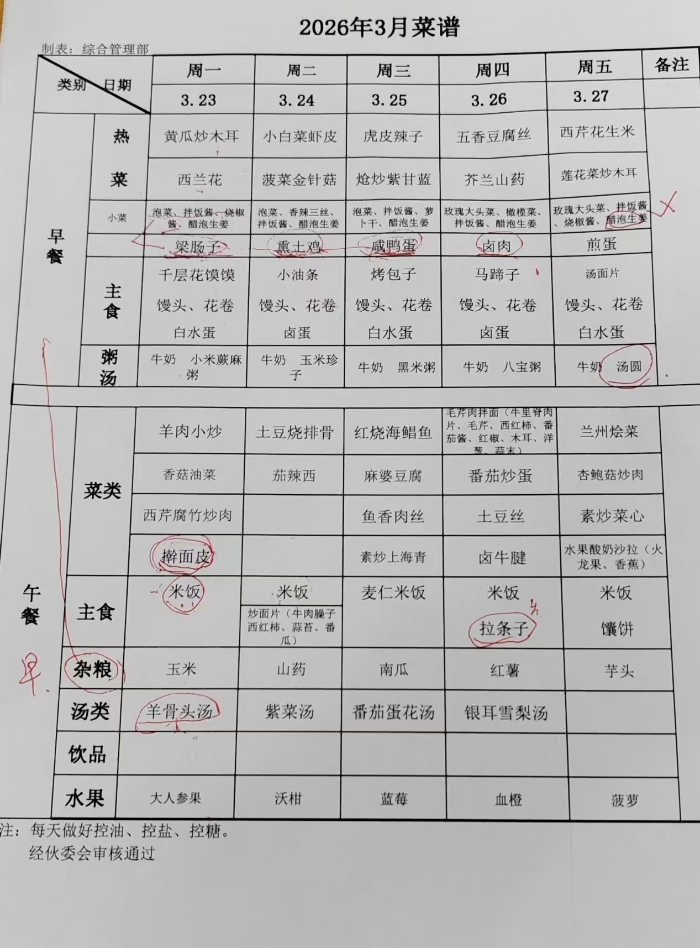 2026年3月菜谱
制表：综合管理部
类别 日期 周一 周二 周三 周四 周五 备注
3.23 3.24 3.25 3.26 3.27
早餐
热菜 黄瓜炒木耳 小白菜虾皮 虎皮辣子 五香豆腐丝 西芹花生米
西兰花 菠菜金针菇 炝炒紫甘蓝 芥兰山药 莲花菜炒木耳
小菜 泡菜、拌饭酱、烧椒酱、醋泡生姜 泡菜、香辣三丝、拌饭酱、醋泡生姜 泡菜、拌饭酱、萝卜干、醋泡生姜 玫瑰大头菜、橄榄菜、拌饭酱、醋泡生姜 玫瑰大头菜、拌饭酱、烧椒酱、醋泡生姜
梁肠子 熏土鸡 咸鸭蛋 卤肉 煎蛋
主食 千层花馍馍 小油条 烤包子 马蹄子 汤面片
馒头、花卷 馒头、花卷 馒头、花卷 馒头、花卷 馒头、花卷
白水蛋 卤蛋 白水蛋 卤蛋 白水蛋
粥汤 牛奶 小米蕨麻粥 牛奶 玉米珍子 牛奶 黑米粥 牛奶 八宝粥 牛奶 汤圆
午餐
菜类 羊肉小炒 土豆烧排骨 红烧海鲳鱼 毛芹肉拌面（牛里脊肉片、毛芹、西红柿、番茄酱、红椒、木耳、洋葱、蒜末） 兰州烩菜
香菇油菜 茄辣西 麻婆豆腐 番茄炒蛋 杏鲍菇炒肉
西芹腐竹炒肉 鱼香肉丝 土豆丝 素炒菜心
擀面皮 素炒上海青 卤牛腱 水果酸奶沙拉（火龙果、香蕉）
主食 米饭 米饭 麦仁米饭 米饭 米饭
炒面片（牛肉臊子西红柿、蒜苔、番瓜） 拉条子 馕饼
早.
杂粮 玉米 山药 南瓜 红薯 芋头
汤类 羊骨头汤 紫菜汤 番茄蛋花汤 银耳雪梨汤
饮品
水果 大人参果 沃柑 蓝莓 血橙 菠萝
注：每天做好控油、控盐、控糖。
经伙委会审核通过